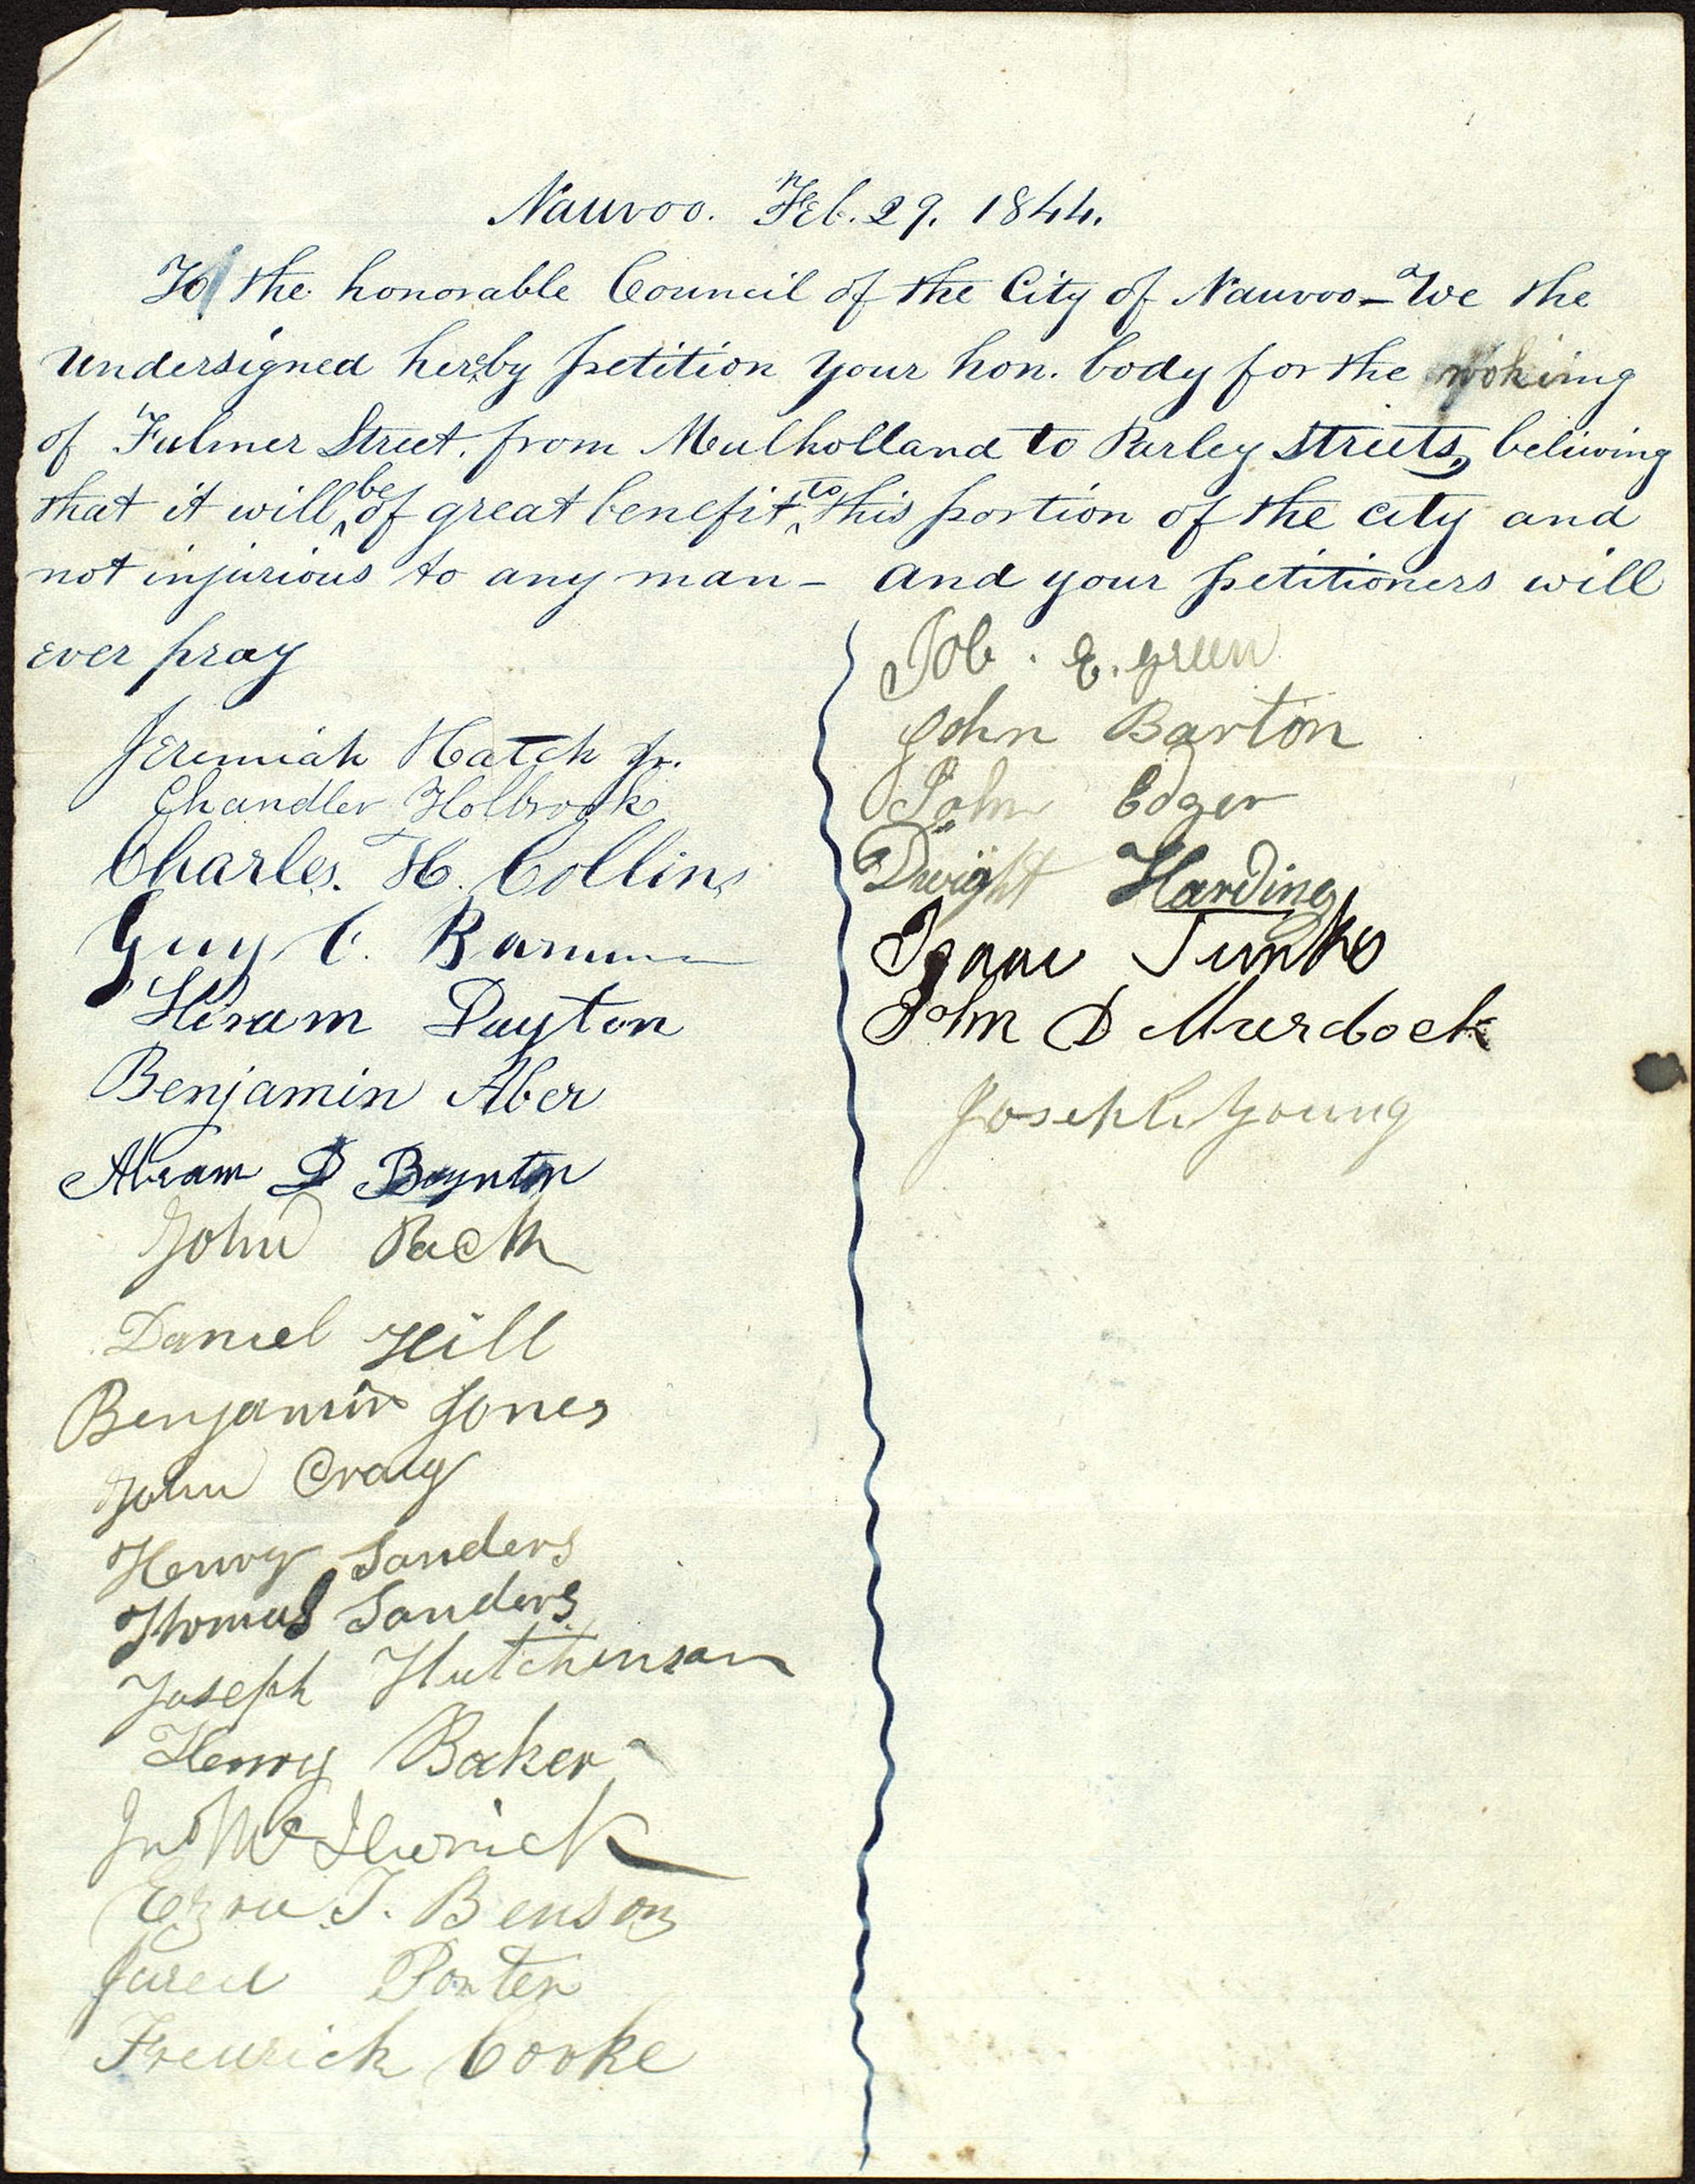 Nauvoo. Feb. 29. 1844.
To the honorable Council of the City of Nauvoo – We the
undersigned hereby petition your hon. body for the
of Fulmer Street. from Mulholland to Parley Streets, beliving
that it will be of great benefit to this portion of the city and
not injurious to any man – and your petitioners will
ever pray
Jeremiah Hatch Jr.
Chandler Holbrook
Charles. H. Collins
Guy C. Barnum
Hiram Dayton
Benjamin Aber
Abram D Boynton
John Pack
Daniel Hill
Benjamin Jones
John Craig
Henry Sanders
Thomas Sanders
Joseph Hutchinson
Henry Baker
Jno
Ezra T. Benson
Jared Porter
Fredrick Cooke
Job. E. Green
John Barton
John Edger
Dwight Harding
Isaac
John D Murdock
Joseph Young